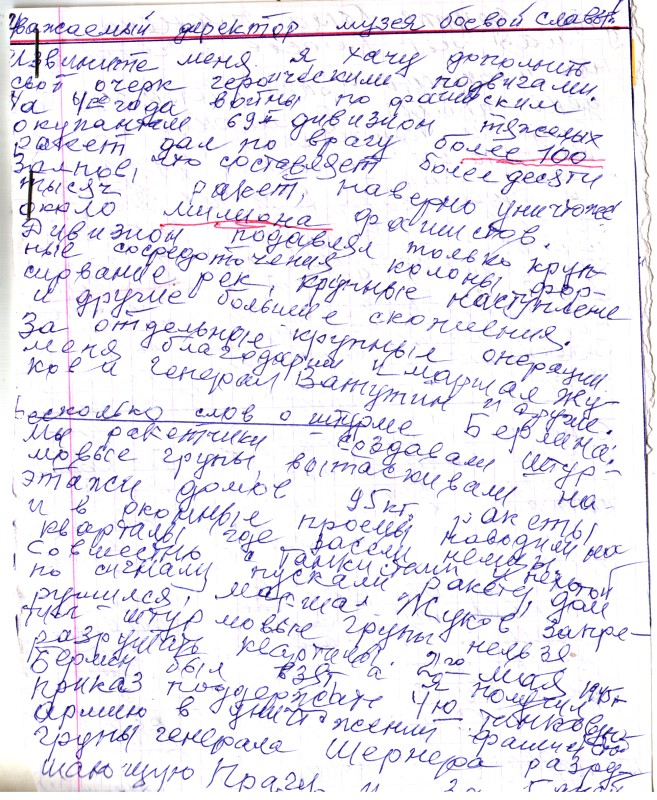 Уважаемый директор музея боевой славы.
Извините меня. я хачу дополнить
свой очерк героическими подвигами.
За 4е года войны по фашиским
окупантам 69й дивизион тяжолых
ракет дал по врагу более 100
Залпов, это составляет более десяти
тысяч ракет, наверно уничтоже
около милиона фашистов.
Дивизион подавлял только круп-
ные сосредоточения колоны фор-
сирование рек, крупные наступление
и другие большие скопления.
За отдельные крупные операции
меня благодарил и маршал Жу-
ков и генерал Ватутин и други.
Несколько слов о штурме Берлина:
Мы ракетчики - создавали штур-
мовые групы вытаскивали на
этажи домов 95 кг. ракеты
и в оконные проемы наводили на
кварталы где засели немцы
Совместно с танкистами и пехотой
по сигналу пускали ракету, дом
рушился, маршал Жуков запре-
тил штурмовые групы нельзя
разрушать кварталы.
Берлин был взят а 2го мая 1945г
приказ поддержать 4ю танковую
армию в уничтжении вращеской
групы генерала Шернера разру
шающую Прагу